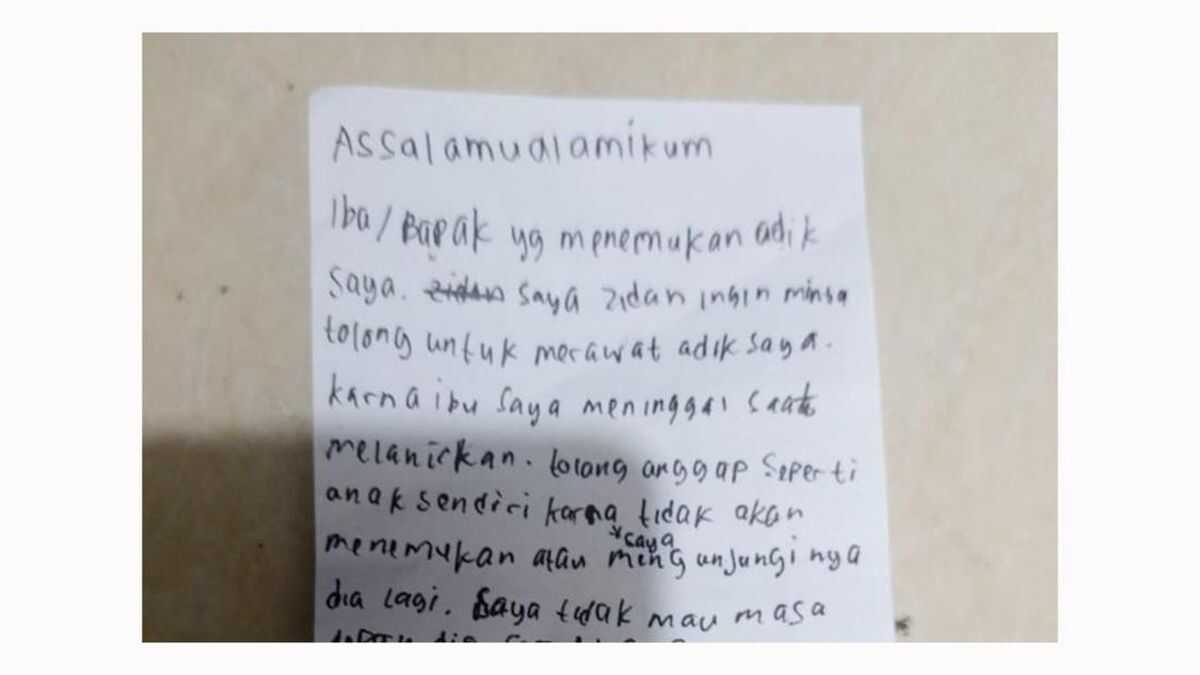 Assalamualamikum
Iba/Bapak yg menemukan adik
saya. zidan saya zidan ingin minsa
tolong untuk merawat adik saya.
karna ibu saya meninggal saat
melanirkan. tolong anggap seperti
anak sendiri karna tidak akan
saya
menemukan atau mengunjungi nya
dia lagi. Saya tidak mau masa